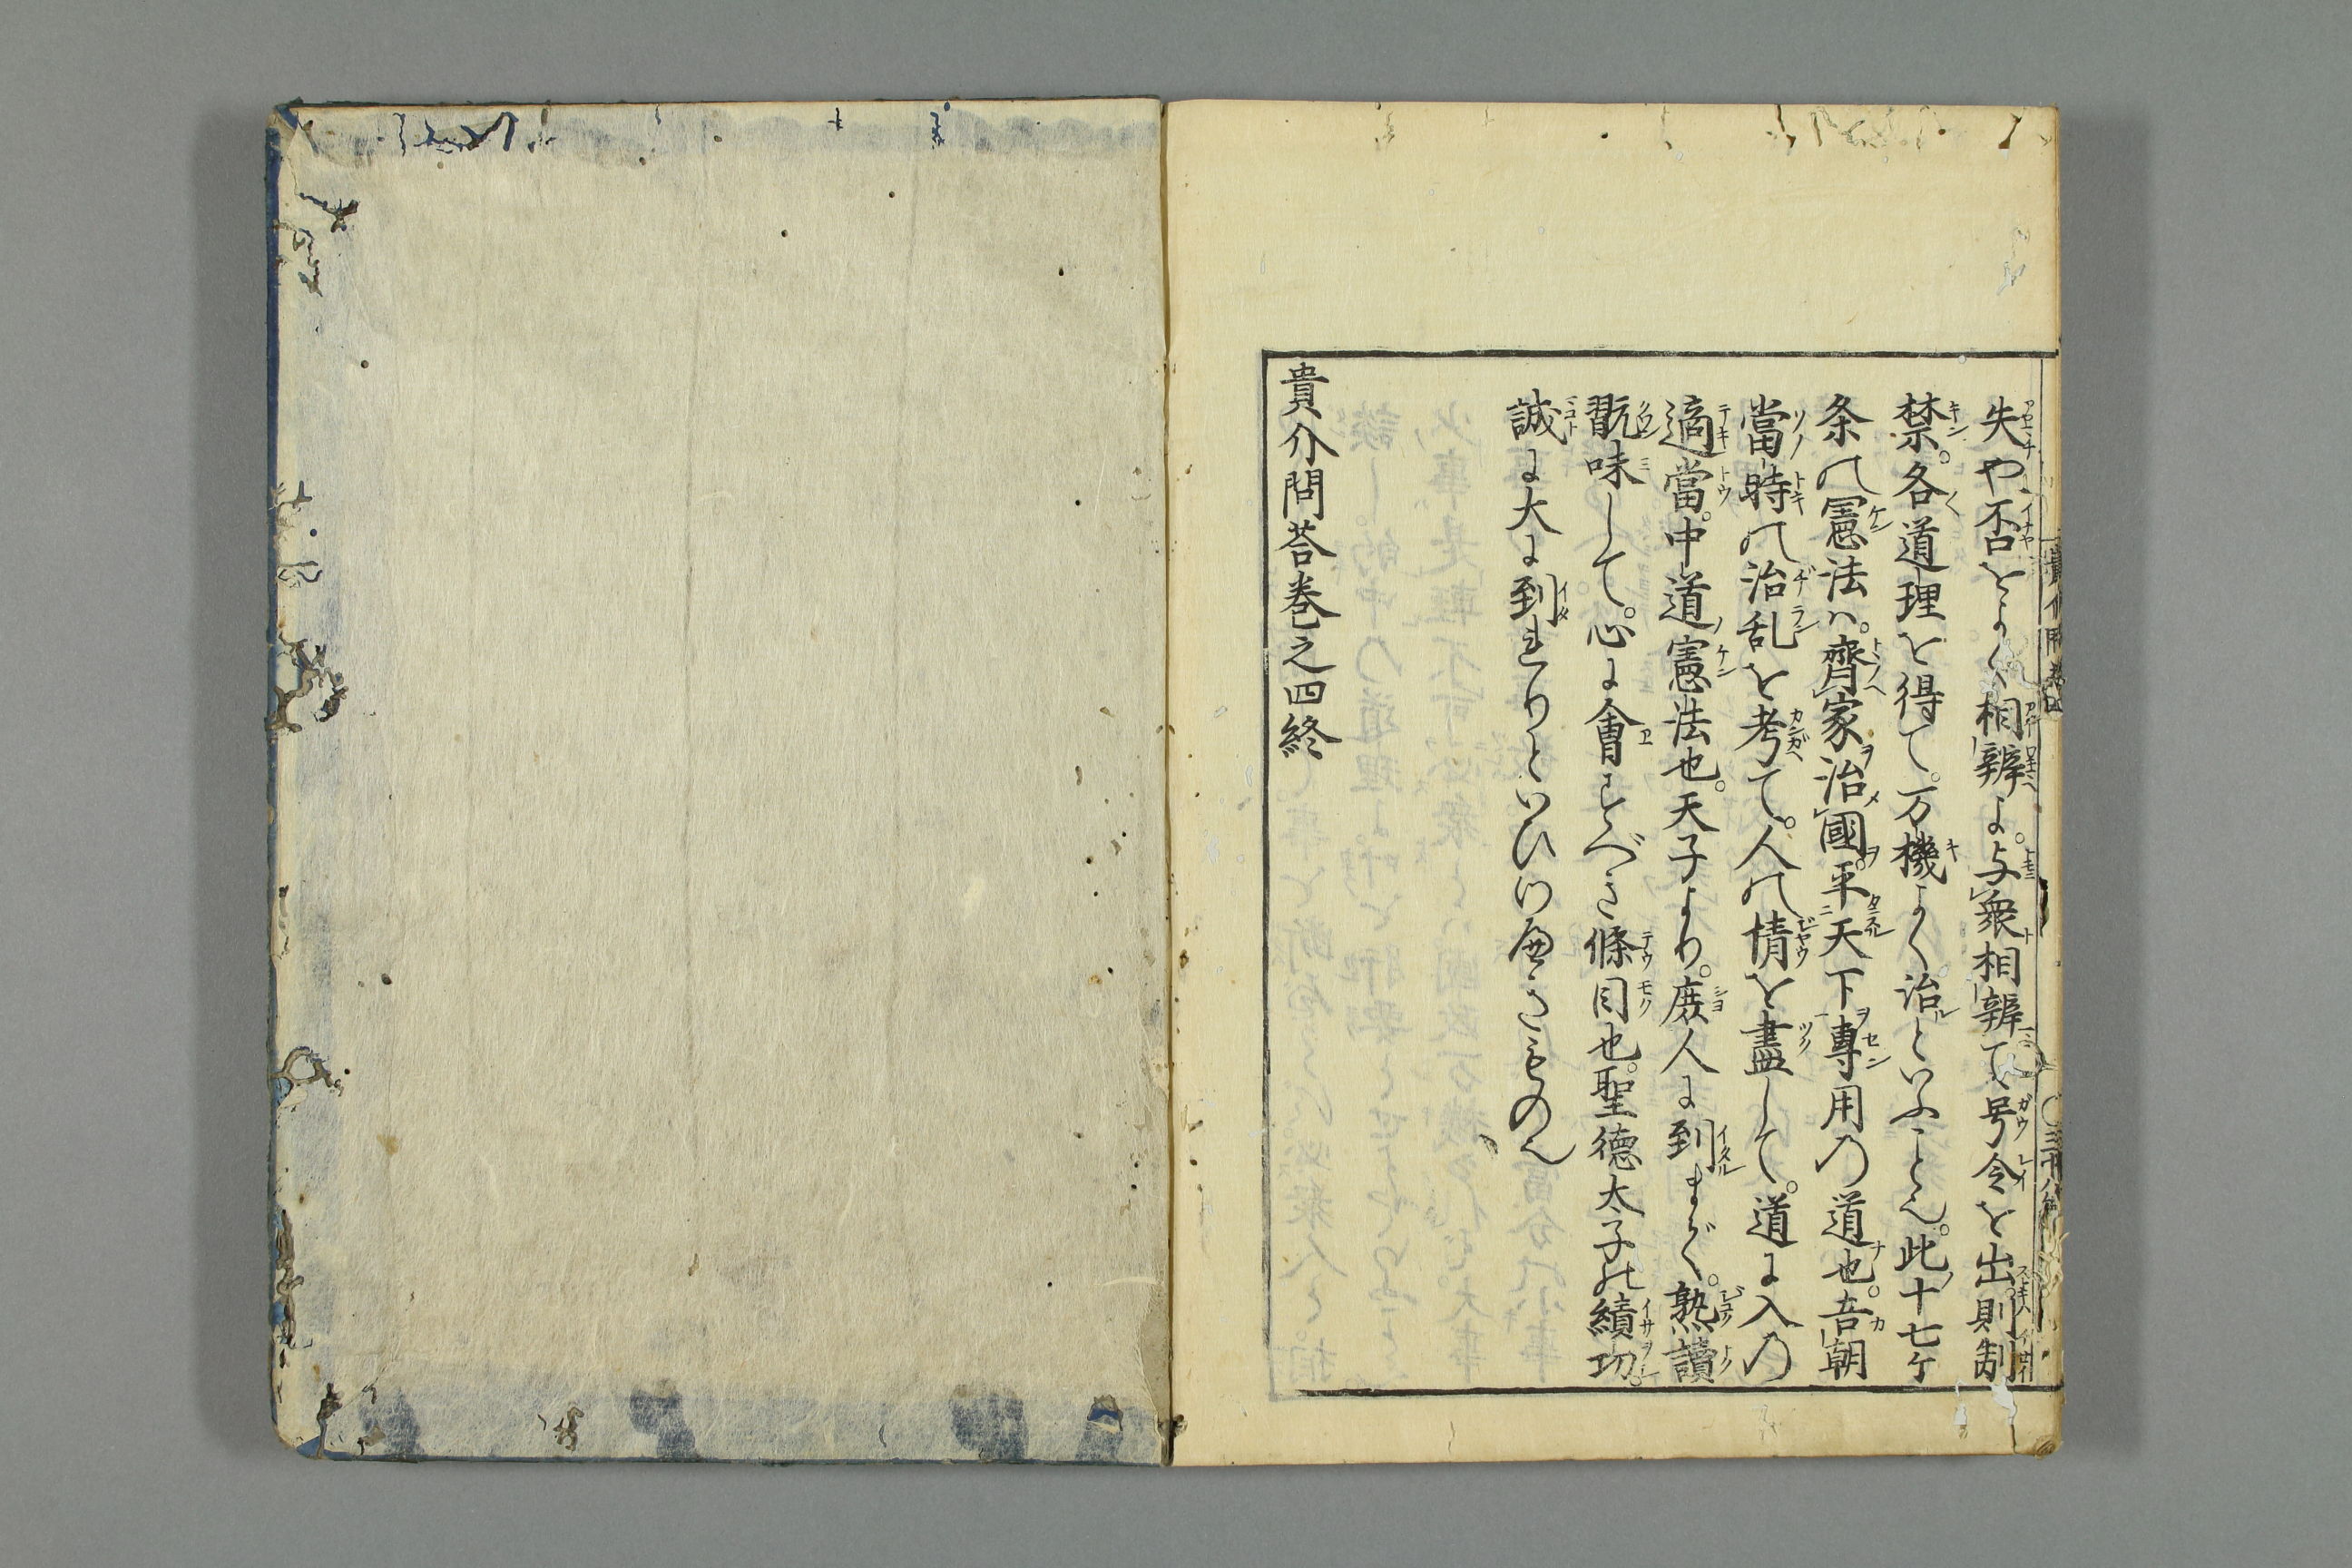 失や否をよく相辨よ。与衆相辨て号令を出則制
禁。各道理を得て。万機よく治といふこと也。此十七ケ
条の憲法ハ。齊家治國平天下專用の道也。吾朝
當時の治乱を考て。人の情を盡して。道に入の
適當。中道憲法也。天子より。庻人に到まで。熟讀
翫味して。心に會すべき條目也。聖徳太子の績功。
誠に大に到れりといひつべきもの也
貴介問荅巻之四終